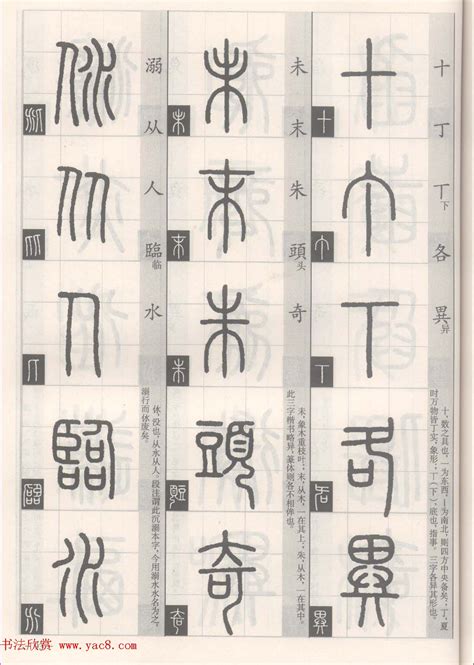 十 丁 丅下 各 異异
十，数之具也，一为东西，丨为南北，则四方中央备矣；丁，夏
时万物皆丁实，象形；丅（下），底也，指事，三字各异其形也。
未 末 朱 頭头 奇
未，象木重枝叶；末，从木，一在其上；朱，从木，一在其中，
此三字楷书略异，篆体则各不相侔也。
溺 从 人 臨临 水
㲻，没也，从水从人；段注谓此沉溺本字，今用溺水水名为之，
溺行而㲻废矣。
书法欣赏 www.yac8.com